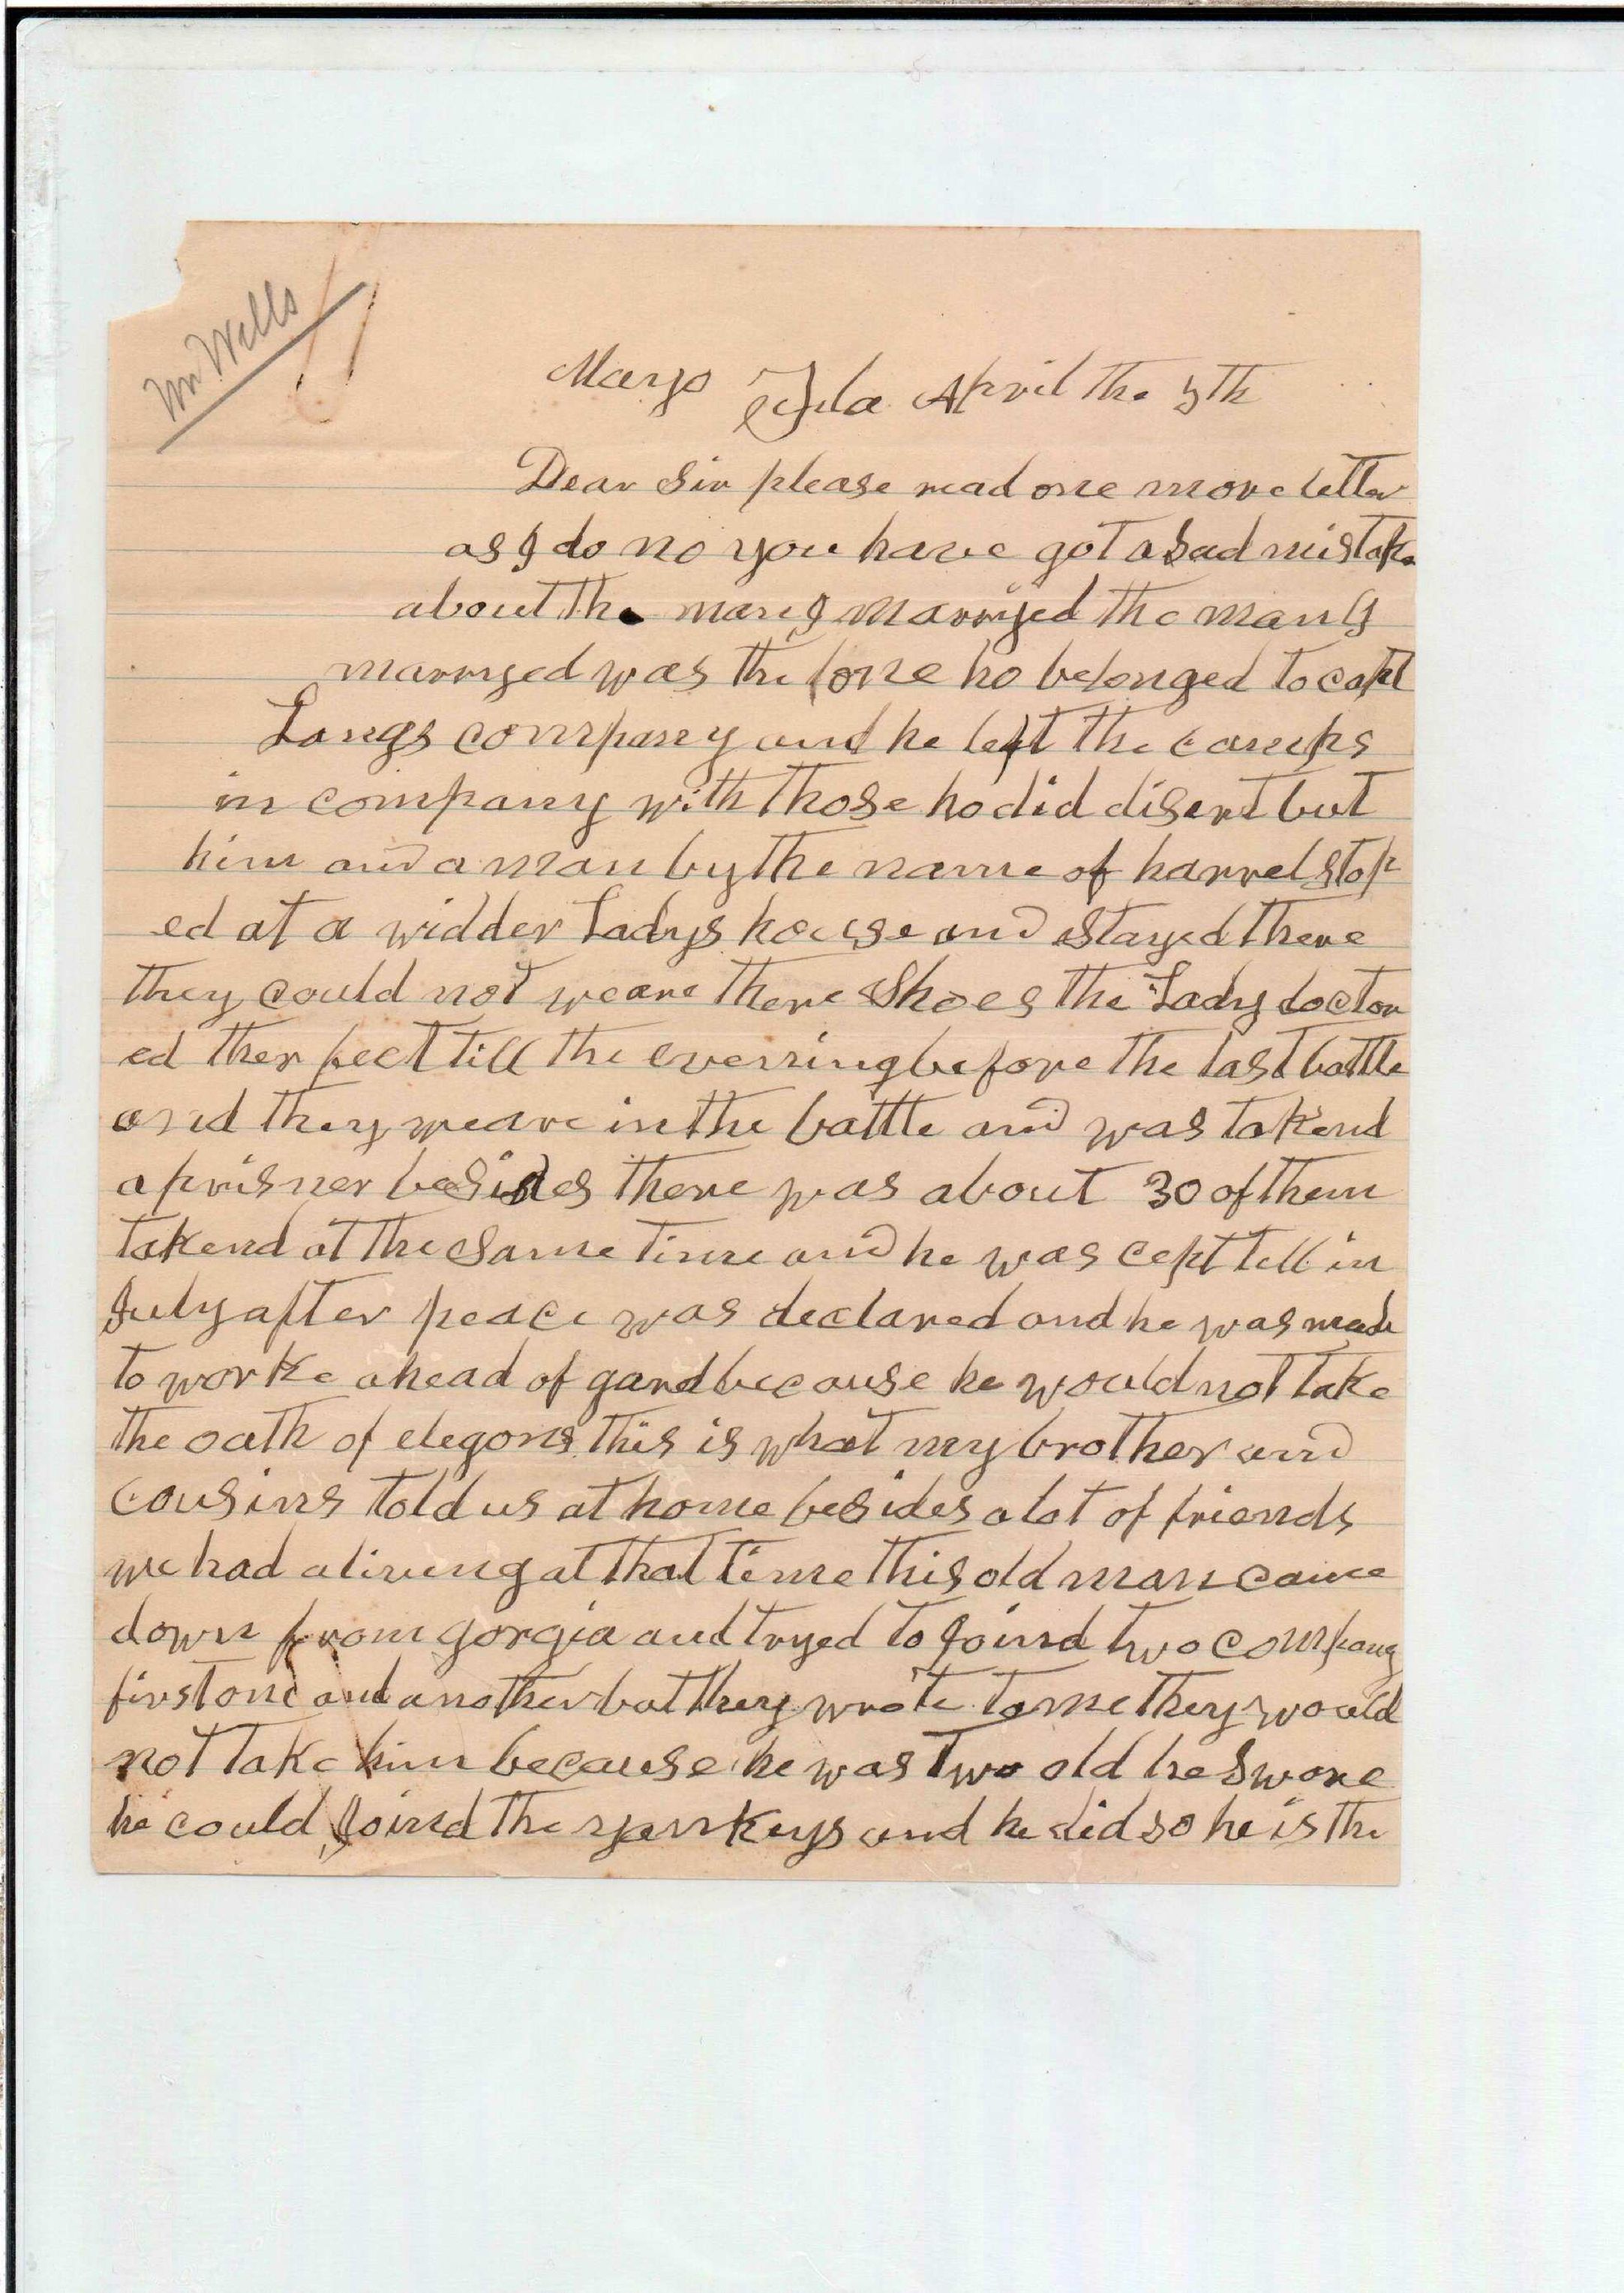 Mr Wells
Mayo Fla April the 5th
Dear Sir please read one more letter
as I do no you have got a bad mistake
about the man I marryed the man I
marryed was the one ho belonged to capt
Langs company and he left the camps
in company with those ho did disert but
him and a man by the name of harrel stop
ed at a widder Ladys house and stayed there
they could not weare there shoes the Lady doctor
ed ther feet till the evening before the last battle
and they weare in the battle and was takend
a prisner besides there was about 30 of them
takend at the same time and he was cept till in
July after peace was declared and he was made
to worke ahead of gard because he would not take
the oath of elegons this is what my brother and
cousins told us at home besides a lot of friends
we had a living at that time this old man came
down from gorgia and tryed to joind two company
first one and another but they wrote to me they would
not take him because he was two old he swore
he could joind the yankeys and he did so he is the